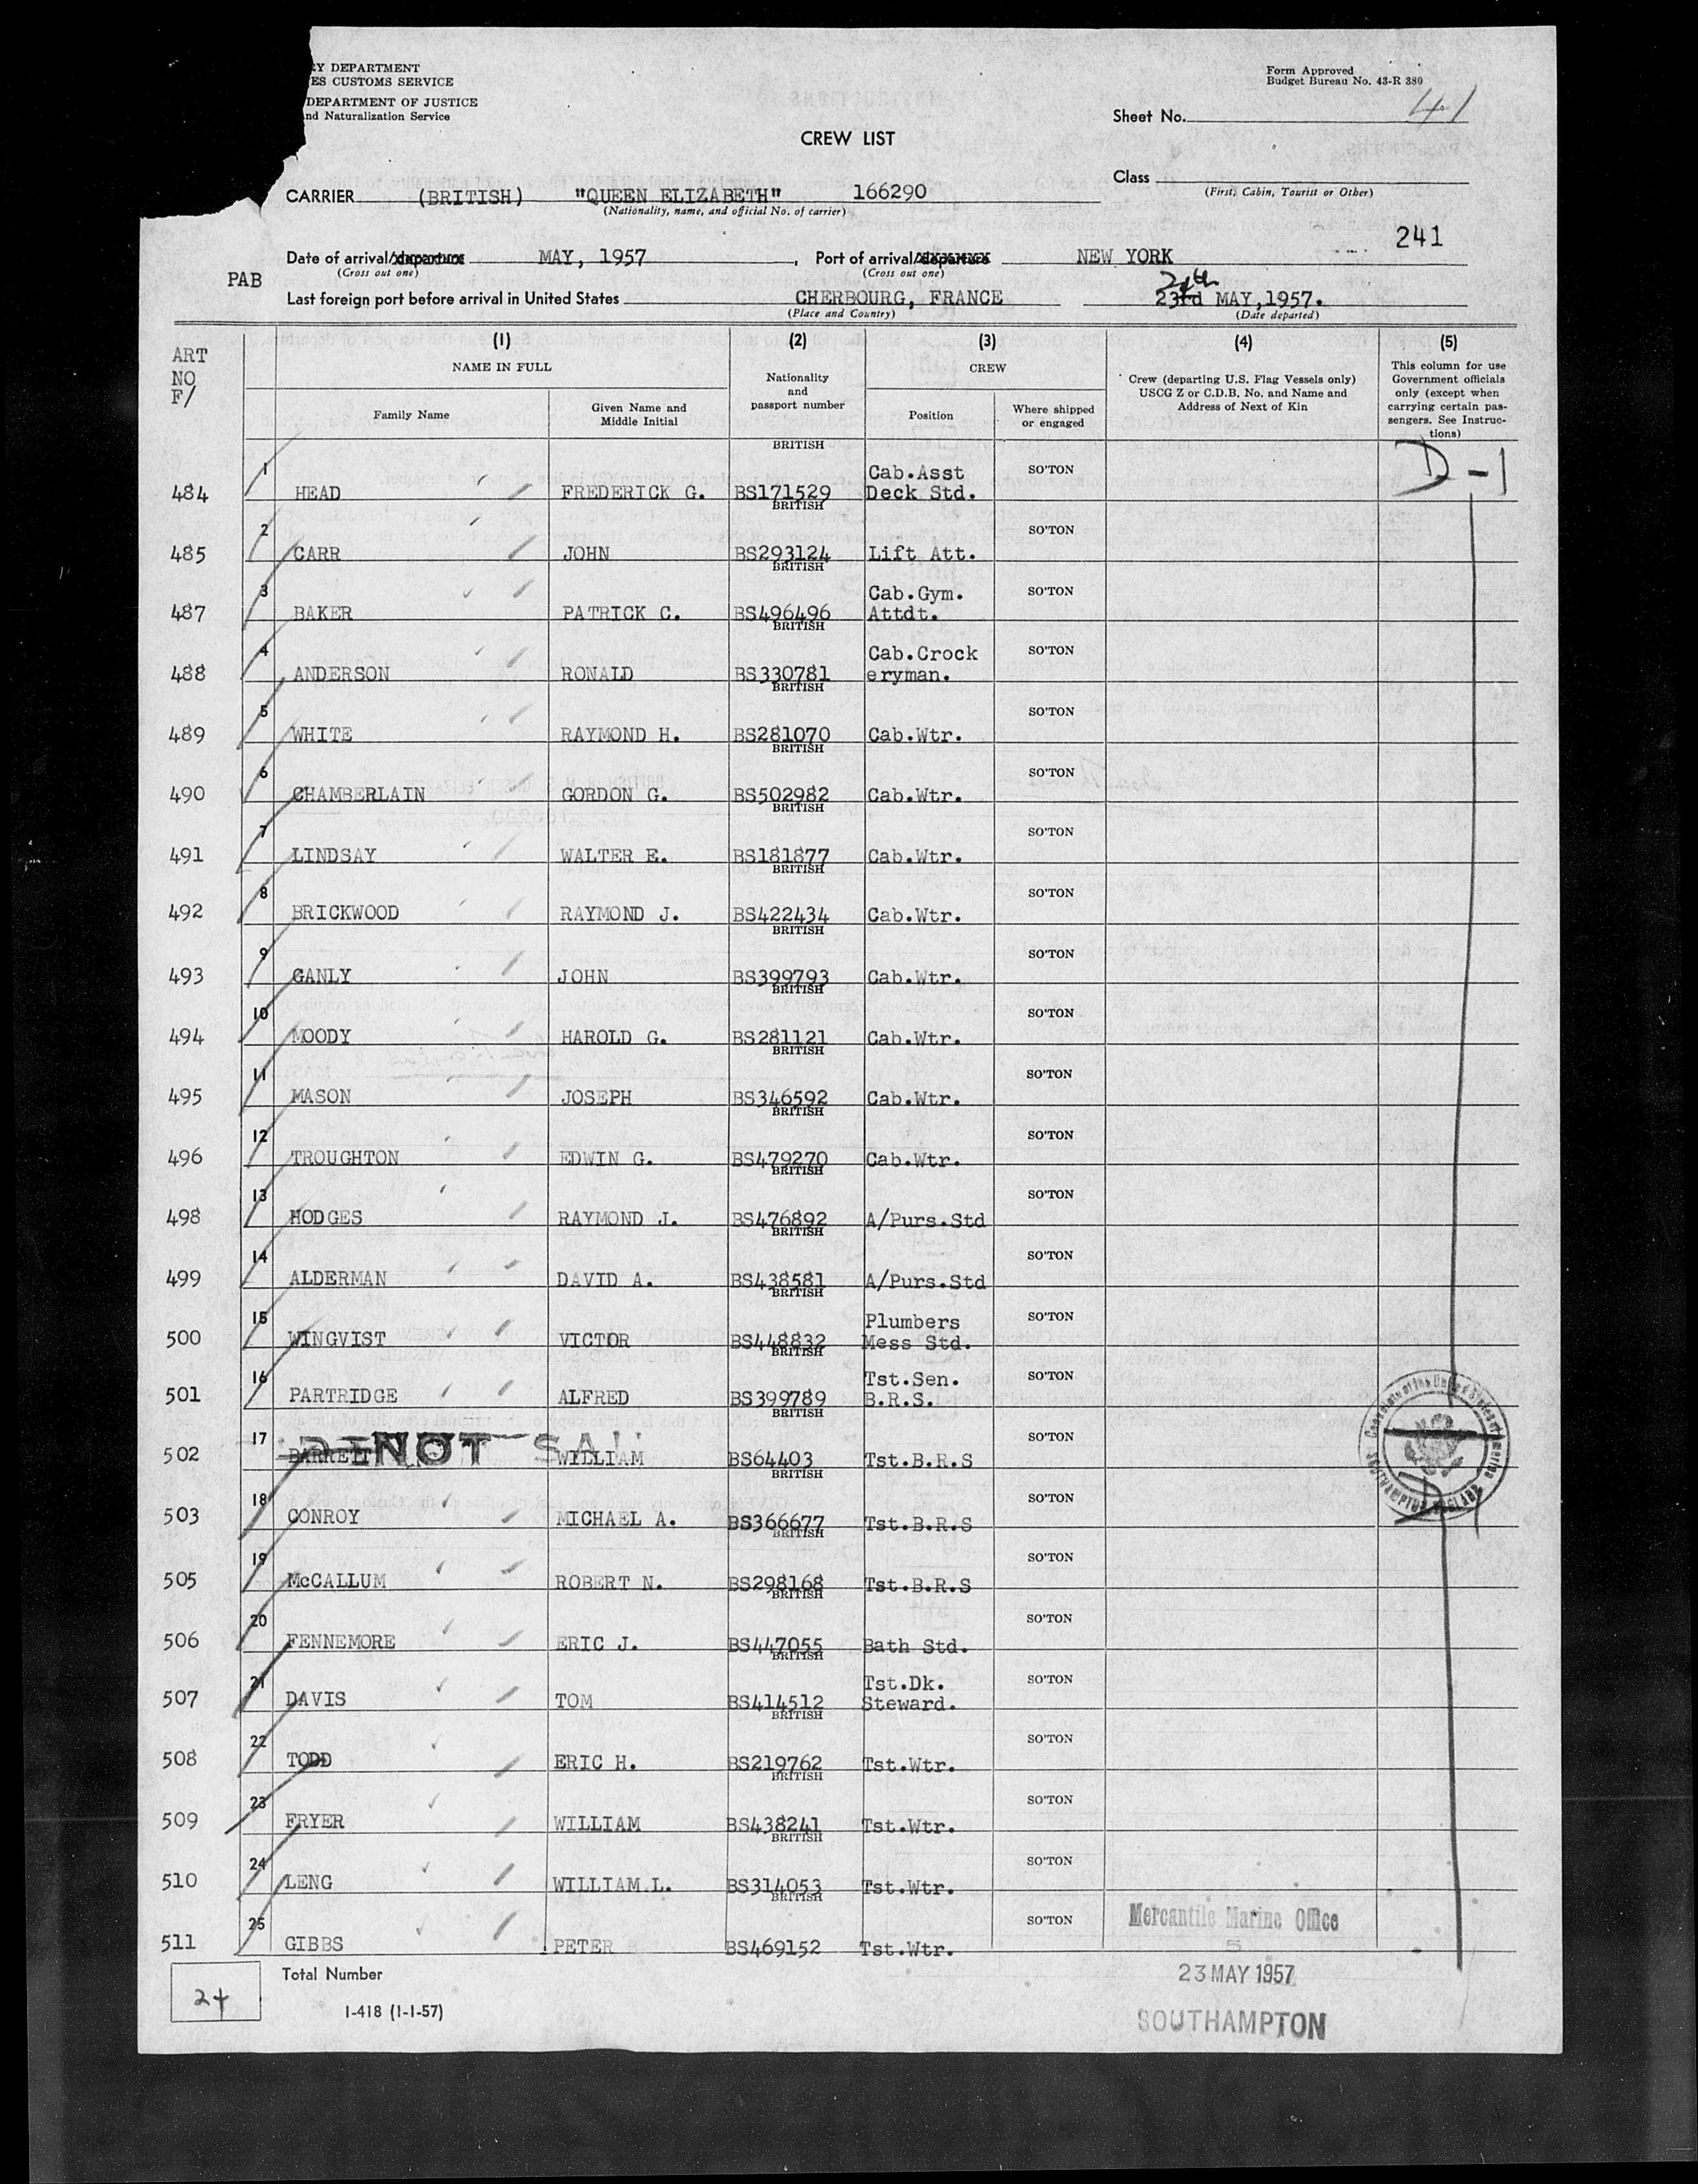 Y DEPARTMENT
ES CUSTOMS SERVICE
DEPARTMENT OF JUSTICE
nd Naturalization Service
Form Approved
Budget Bureau No. 43-R 380
Sheet No. 41
CREW LIST
Class
(First, Cabin, Tourist or Other)
CARRIER (BRITISH) "QUEEN ELIZABETH" 166290
(Nationality, name, and official No. of carrier)
241
Date of arrival/departure MAY, 1957, Port of arrival/departure NEW YORK
(Cross out one) (Cross out one)
PAB
24th
Last foreign port before arrival in United States CHERBOURG, FRANCE 23rd MAY, 1957.
(Place and Country) (Date departed)
ART NO F/
(1) (2) (3) (4) (5)
NAME IN FULL
Family Name
Given Name and Middle Initial
Nationality and passport number
CREW
Position
Where shipped or engaged
Crew (departing U.S. Flag Vessels only) USCG Z or C.D.B. No. and Name and Address of Next of Kin
This column for use Government officials only (except when carrying certain passengers. See Instructions)
D-1
484 1 HEAD FREDERICK G. BRITISH BS171529 Cab.Asst Deck Std. SO'TON
485 2 CARR JOHN BRITISH BS293124 Lift Att. SO'TON
487 3 BAKER PATRICK C. BRITISH BS496496 Cab.Gym. Attdt. SO'TON
488 4 ANDERSON RONALD BRITISH BS330781 Cab.Crock eryman. SO'TON
489 5 WHITE RAYMOND H. BRITISH BS281070 Cab.Wtr. SO'TON
490 6 CHAMBERLAIN GORDON G. BRITISH BS502982 Cab.Wtr. SO'TON
491 7 LINDSAY WALTER E. BRITISH BS181877 Cab.Wtr. SO'TON
492 8 BRICKWOOD RAYMOND J. BRITISH BS422434 Cab.Wtr. SO'TON
493 9 GANLY JOHN BRITISH BS399793 Cab.Wtr. SO'TON
494 10 MOODY HAROLD G. BRITISH BS281121 Cab.Wtr. SO'TON
495 11 MASON JOSEPH BRITISH BS346592 Cab.Wtr. SO'TON
496 12 TROUGHTON EDWIN G. BRITISH BS479270 Cab.Wtr. SO'TON
498 13 HODGES RAYMOND J. BRITISH BS476892 A/Purs.Std SO'TON
499 14 ALDERMAN DAVID A. BRITISH BS438581 A/Purs.Std SO'TON
500 15 WINGVIST VICTOR BRITISH BS448832 Plumbers Mess Std. SO'TON
501 16 PARTRIDGE ALFRED BRITISH BS399789 Tst.Sen. B.R.S. SO'TON
502 17 BARRETT WILLIAM BRITISH BS64403 Tst.B.R.S SO'TON
NOT SAIL
503 18 CONROY MICHAEL A. BRITISH BS366677 Tst.B.R.S SO'TON
505 19 McCALLUM ROBERT N. BRITISH BS298168 Tst.B.R.S SO'TON
506 20 FENNEMORE ERIC J. BRITISH BS447055 Bath Std. SO'TON
507 21 DAVIS TOM BRITISH BS414512 Tst.Dk. Steward. SO'TON
508 22 TODD ERIC H. BRITISH BS219762 Tst.Wtr. SO'TON
509 23 FRYER WILLIAM BRITISH BS438241 Tst.Wtr. SO'TON
510 24 LENG WILLIAM L. BRITISH BS314053 Tst.Wtr. SO'TON
511 25 GIBBS PETER BRITISH BS469152 Tst.Wtr. SO'TON
Total Number
24
I-418 (1-1-57)
Mercantile Marine Office
5
23 MAY 1957
SOUTHAMPTON